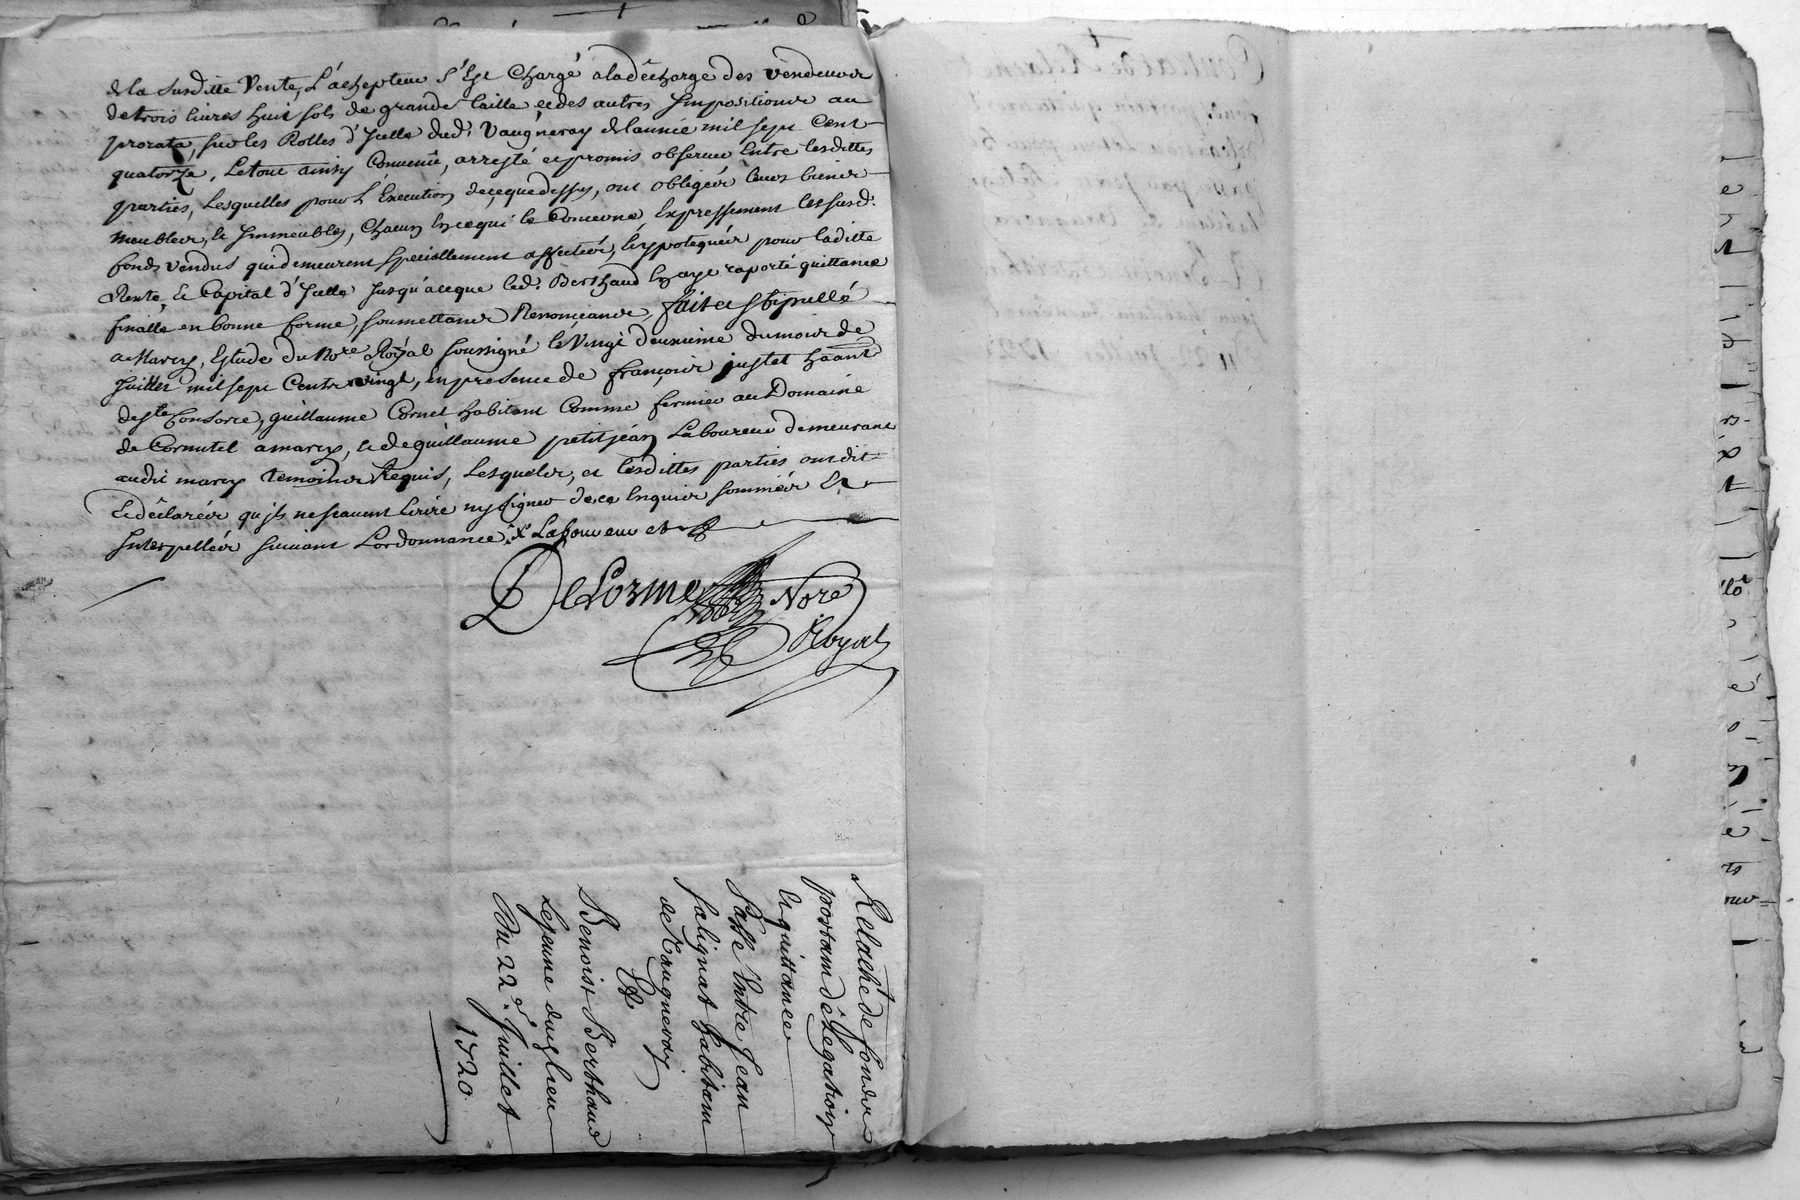 de la susditte Vente, L'achepteur s'Est Chargé a la décharge des vendeurs
de trois livres huit sols de grande taille et des autres Impositions au
prorata, sur les Rolles d'Icelle dud. Vaugneray de l'année mil sept Cent
quatorze, Le tout ainsy Convenu, arresté et promis observer Entre lesdittes
parties, Lesquelles pour L'Execution de ce que dessus, ont obligées leurs biens
meubles, et Immeubles, Chacun En ce qui le Concerne, Expressement les susd.
fonds vendus qui demeurent speciallement affectés, et hypotequés pour laditte
Rente, et Capital d'Icelle Jusqu'a ce que led. Berthaud En aye raporté quittance
finalle en bonne forme, soumettans Renonçeans, fait et stipullé
a Marcy, Estude du Nore Royal soussigné le Vingt deuxieme du mois de
Juillet mil sept Cents vingt, En presence de françois justet haant
de Ste Consorce, guillaume Cornet habitant Comme fermier au Domaine
de Cornutel a marcy, et de guillaume petitjean Laboureur demeurant
audit marcy temoins Requis, Lesquels, et lesdittes parties ont dit
Et déclarées qu'ils ne scavent Ecrire ny signer de ce Enquis sommés Et
Interpellés suivant L'ordonnance
DeLorme Nore
Royal
Relacht de fonds
portant délegation
Et quittance
Passé Entre Jean
salignat habitant
de Vaugneray
Et
Benoist Berthaud
Lejeune dud lieu
Du 22e. Juillet
1720